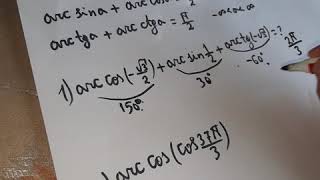 arc sin a + arc cos
arc tg a + arc ctg a = π/2 -∞<α<∞
1) arc cos(-√3/2) + arc sin 1/2 + arc tg(-√3) = ? 2π/3
150° 30° -60°
arc cos(cos 37π/3)